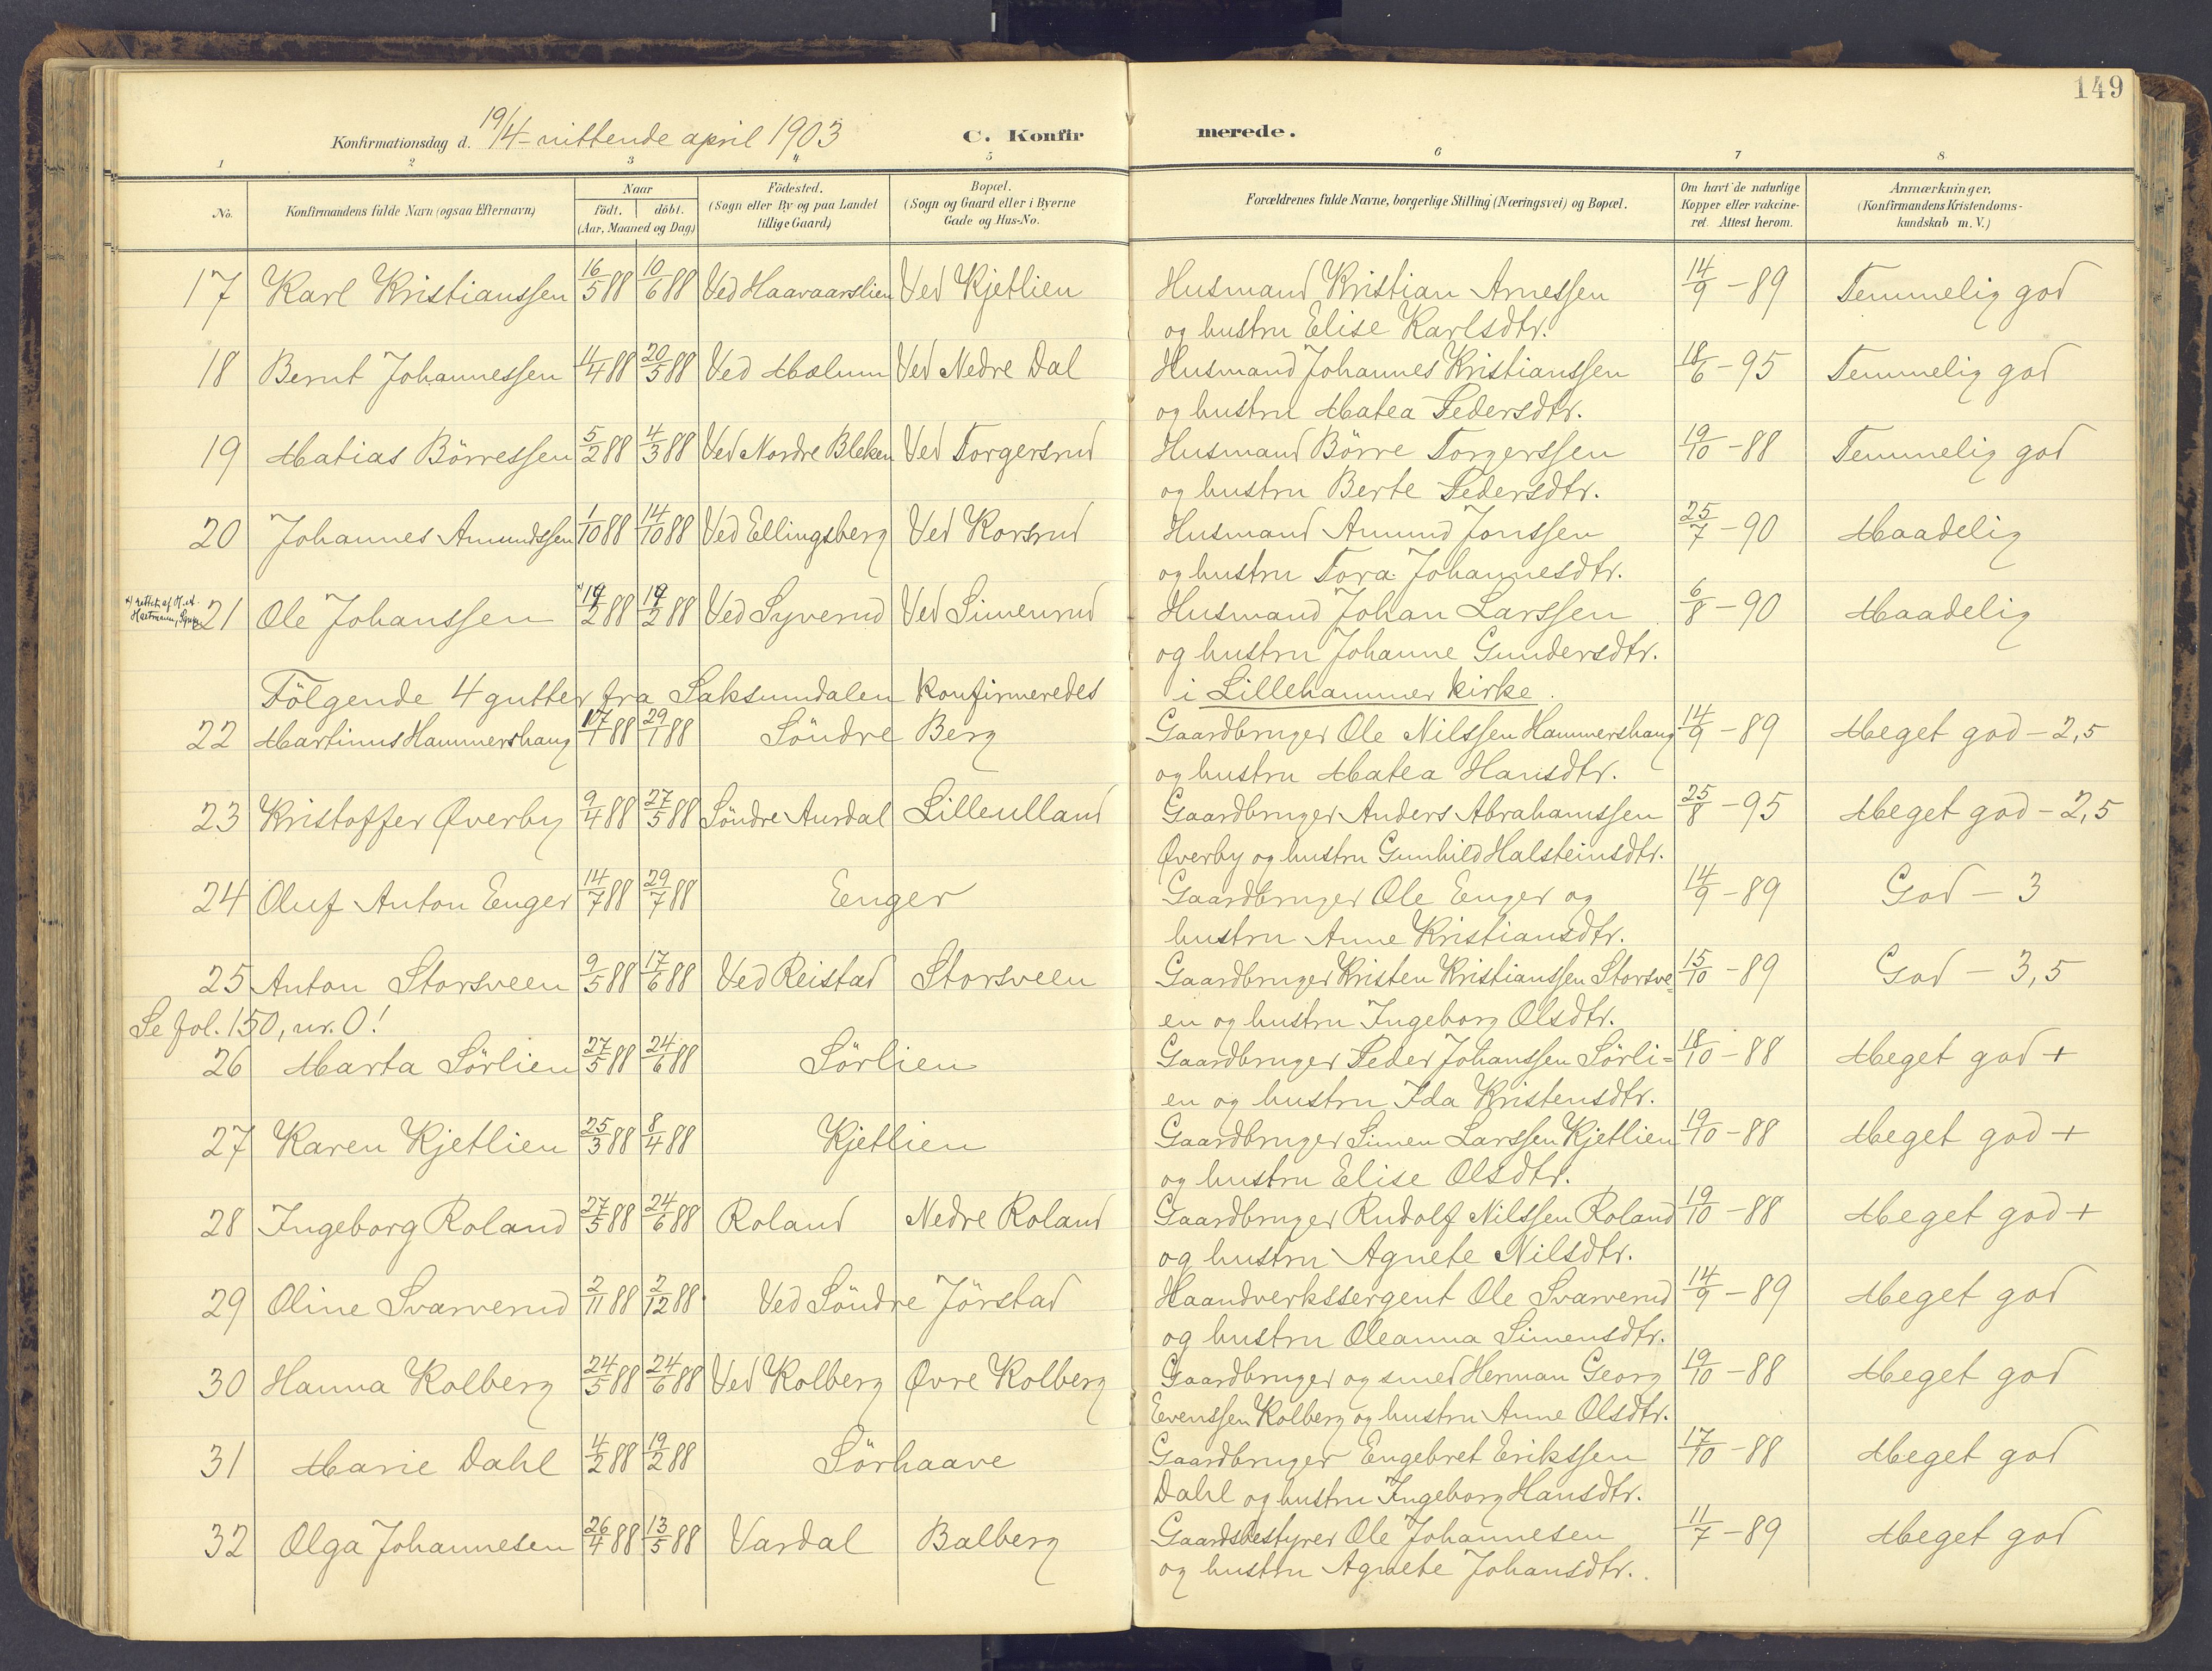 149
Konfirmationsdag d. 19/4 - nittende april 1903 C. Konfirmerede.
1 2 3 4 5 6 7 8
No. Konfirmandens fulde Navn (ogsaa Efternavn) Naar födt. döbt. (Aar, Maaned og Dag) Födested. (Sogn eller By og paa Landet tillige Gaard) Bopæl. (Sogn og Gaard eller i Byerne Gade og Hus-No. Forældrenes fulde Navne, borgerlige Stilling (Næringsvei) og Bopæl. Om havt de naturlige Kopper eller vakcineret. Attest herom. Anmærkninger. (Konfirmandens Kristendomskundskab m. V.)
17 Karl Kristianssen 16/5 88 10/6 88 Ved Haavaarslien Ved Kjetlien Husmand Kristian Arnessen 14/9 - 89 Temmelig god
og hustru Elise Karlsdtr.
18 Bernt Johannessen 11/4 88 20/5 88 Ved Mælum Ved Nedre Dal Husmand Johannes Kristianssen 18/6 - 95 Temmelig god
og hustru Matea Pedersdtr.
19 Matias Börressen 5/2 88 4/3 88 Ved Nordre Bleken Ved Torgersrud Husmand Börre Torgerssen 19/10 - 88 Temmelig god
og hustru Berte Pedersdtr.
20 Johannes Amundssen 1/10 88 14/10 88 Ved Ellingsberg Ved Korsrud Husmand Amund Jonssen 25/7 - 90 Maadelig
og hustru Tora Johannesdtr.
x) rettet af H. A.
21 Ole Johanssen 88 19/2 88 Ved Syverud Ved Simenrud Husmand Johan Larssen 6/8 - 90 Maadelig
og hustru Johanne Gundersdtr.
Fölgende 4 gutter fra Saksumdalen konfirmeredes i Lillehammer kirke.
22 Martinus Hammershaug 88 29/1 88 Söndre Berg Gaardbruger Ole Nilssen Hammershaug 14/9 - 89 Meget god - 2,5
og hustru Matea Hansdtr.
23 Kristoffer Øverby 9/4 88 27/5 88 Söndre Aurdal Lilleulland Gaardbruger Anders Abrahamssen 25/8 - 95 Meget god - 2,5
Øverby og hustru Gunhild Halsteinsdtr.
24 Oluf Anton Enger 14/7 88 29/7 88 Enger Gaardbruger Ole Enger og 14/9 - 89 God - 3
hustru Anne Kristiansdtr.
25 Anton Storsveen 9/5 88 17/6 88 Ved Reistad Storsveen Gaardbruger Kristen Kristianssen Storsve= 15/10 - 89 God - 3,5
Se fol. 150, nr. 0! en og hustru Ingeborg Olsdtr.
26 Marta Sörlien 27/5 88 24/6 88 Sörlien Gaardbruger Peder Johanssen Sörli= 18/10 - 88 Meget god +
en og hustru Ida Kristensdtr.
27 Karen Kjetlien 25/3 88 8/4 88 Kjetlien Gaardbruger Simen Larssen Kjetlien 19/10 - 88 Meget god +
og hustru Elise Olsdtr.
28 Ingeborg Roland 27/5 88 24/6 88 Roland Nedre Roland Gaardbruger Rudolf Nilssen Roland 19/10 - 88 Meget god +
og hustru Agnete Nilsdtr.
29 Oline Svarverud 2/11 88 2/12 88 Ved Söndre Jörstad Haandverkssergent Ole Svarverud 14/9 - 89 Meget god
og hustru Oleanna Simensdtr.
30 Hanna Kolberg 24/5 88 24/6 88 Ved Kolberg Øvre Kolberg Gaardbruger og smed Herman Georg 19/10 - 88 Meget god
Evenssen Kolberg og hustru Anne Olsdtr.
31 Marie Dahl 4/2 88 19/2 88 Sörhaave Gaardbruger Engebret Erikssen 17/10 - 88 Meget god
Dahl og hustru Ingeborg Hansdtr.
32 Olga Johannesen 26/4 88 13/5 88 Vardal Balberg Gaardsbestyrer Ole Johannesen 11/7 - 89 Meget god
og hustru Agnete Johansdtr.